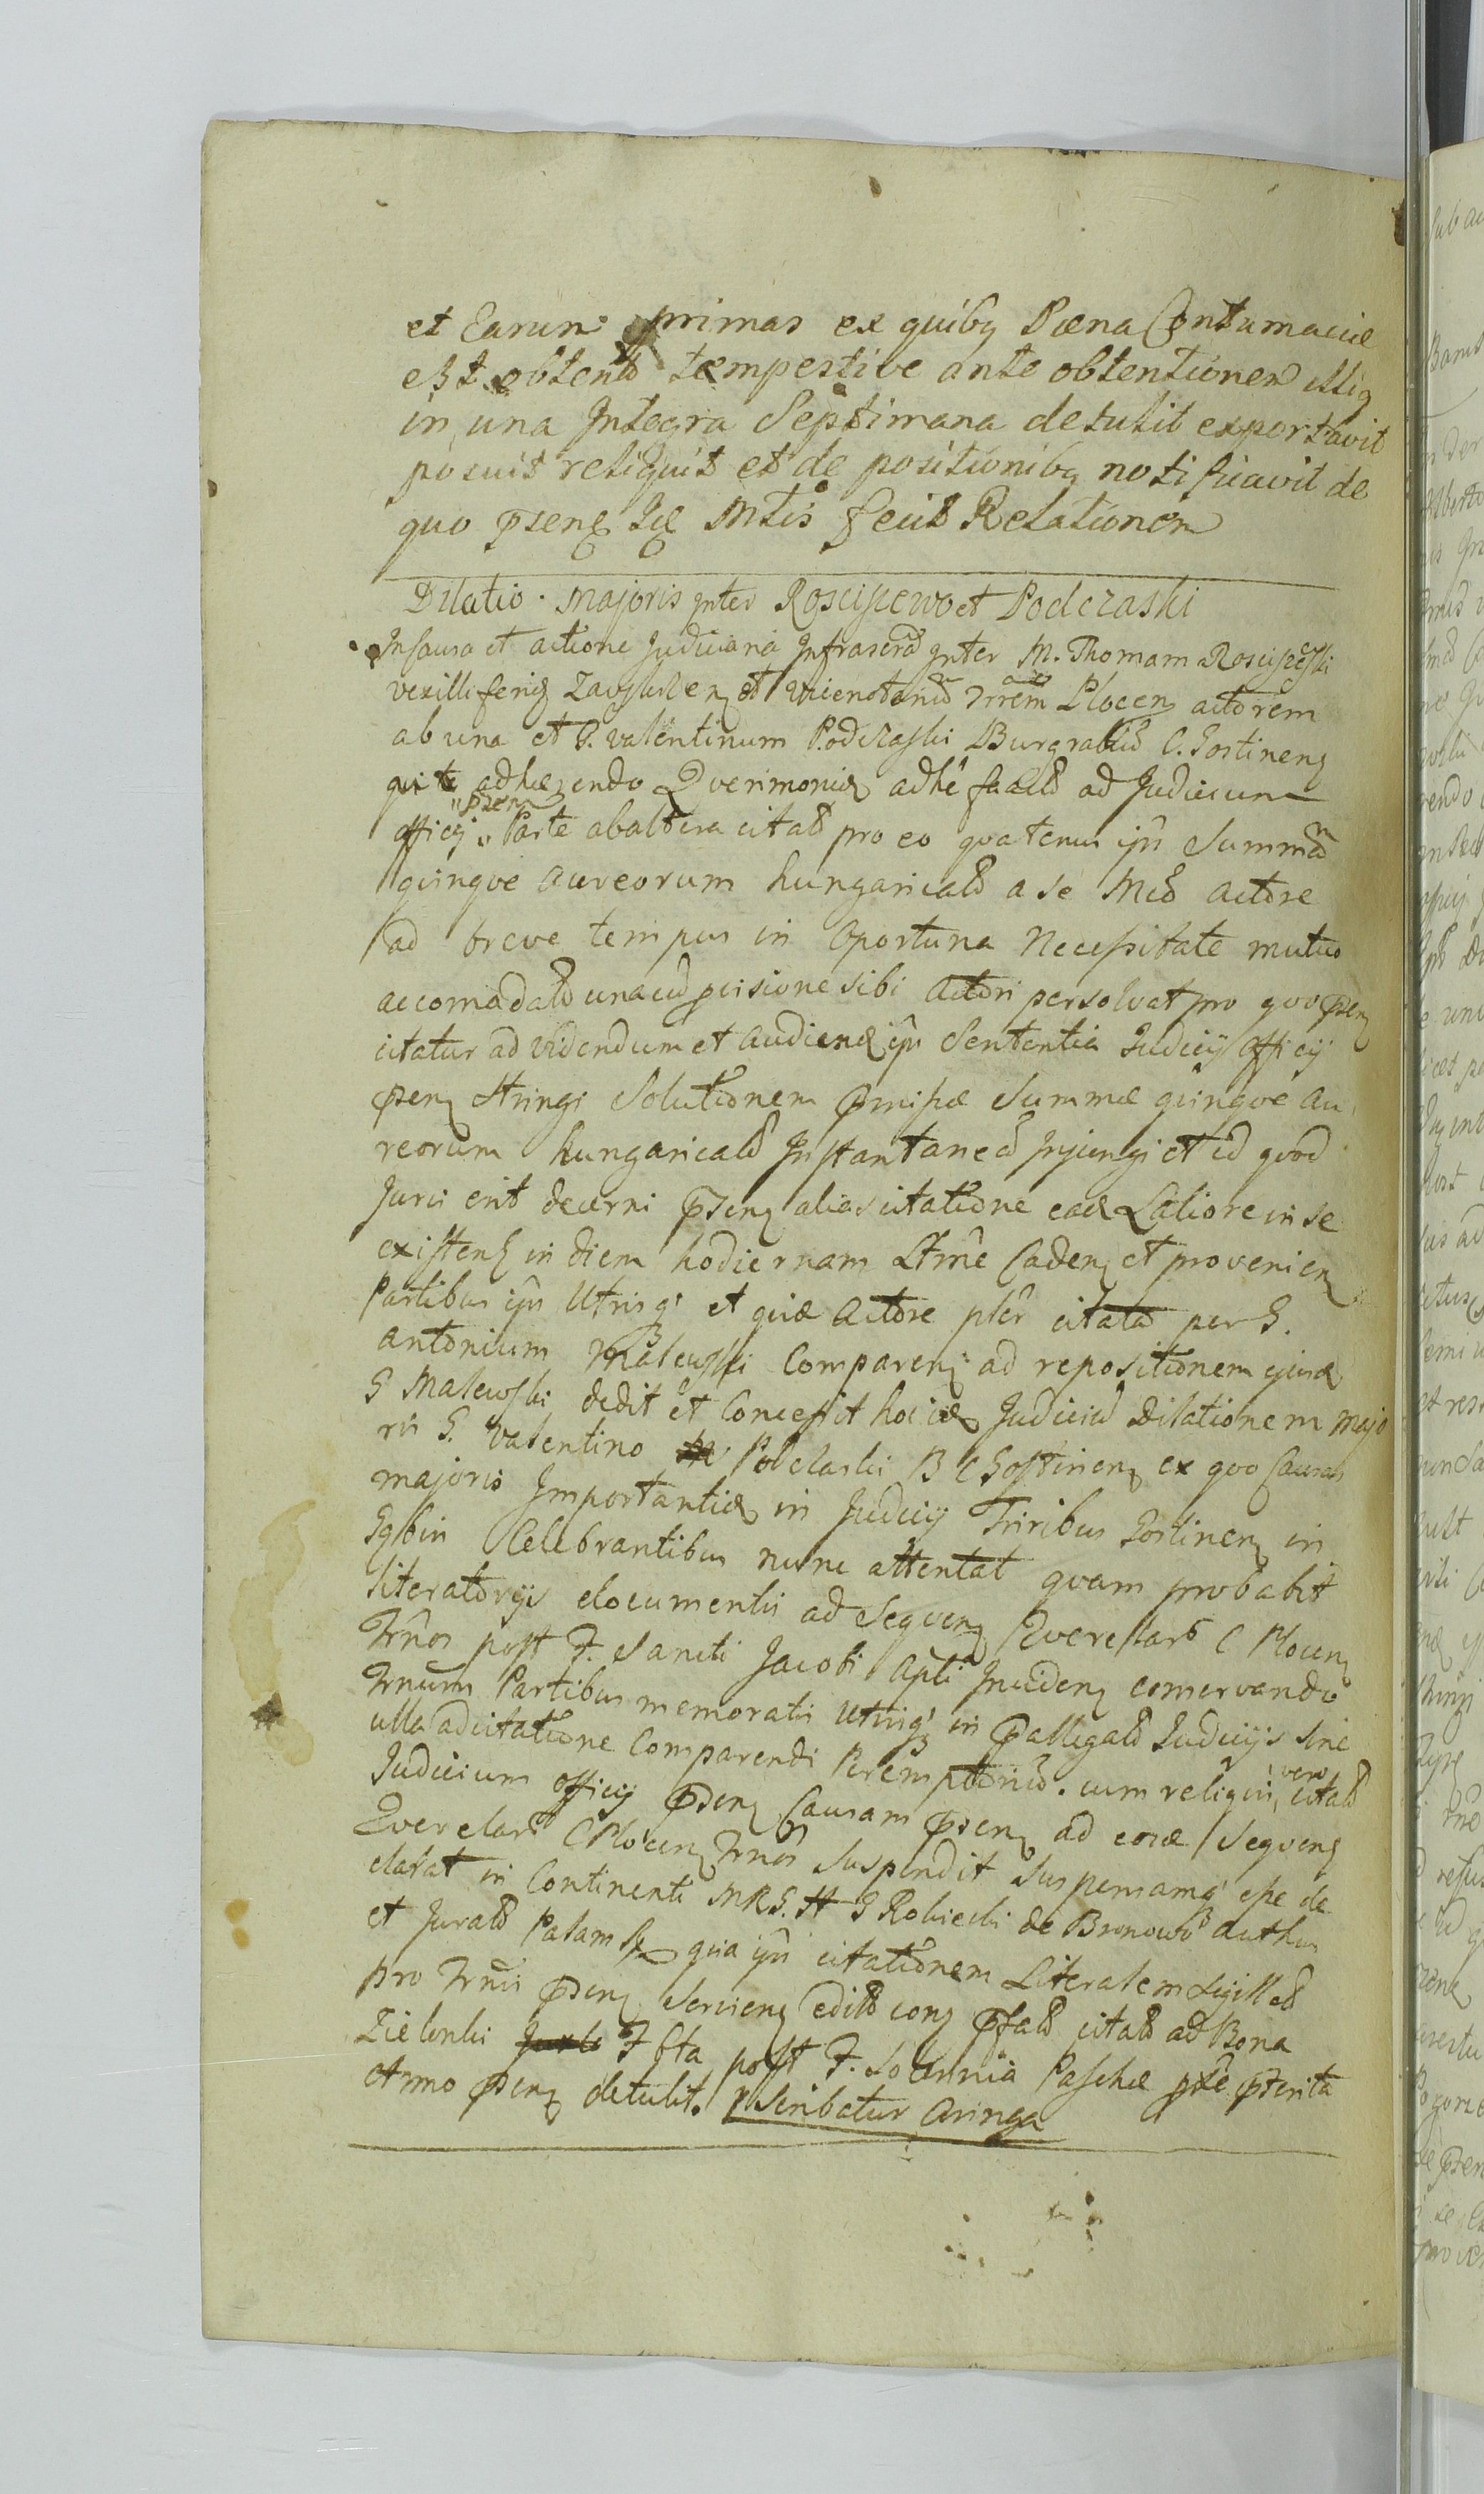 et Earum primas ex quibq Pœna Contumaciæ
est obtenta tempestive ante obtentionem illiq
in una Integra Septimana detulit exportavit
posuit reliquit et de positionibq notificavit de
quo psens Mtis fecit Relationem
Dilatio Majoris inter Roscisewo et Podczaski
In Causa et actione Judiciaria Infrascrta inter M. Thomam Rosciszeski
vexilliferid Zavskrzen et Plocen actorem
ab una et G. Valentinum Podczaski Burgrabiu C. Gostinens
adhærendo Querimoniæ adhe factæ ad Judicium
psen
officij Parte ab altera citato pro eo quatenus ipse Summam
quinque Aureorum hungaricalu a se Mco Actore
ad breve tempus in Oportuna Necessitate mutuo
accomodatu unacu pcisione sibi Actori persolvat pro quo psens
citatur ad videndum et audiend ipm Sententia Judicij Officij
psens Stringi Solutionem pmissæ Summæ quinque Au
reorum hungaricalu Instantanea Injungi et id quod
Juris erit decerni psens alias citatione ead Latiore in se
existens in diem hodiernam Ltme Cadens et provenien
Partibus ipis Utrisq et quidem Actore plr citato per G.
Antonium Malewski Comparens ad repositionem ejusd
G Malewski dedit et Concessit hocce Judiciu Dilationem Majo
ris G. Valentino Podczaski B C Gostinens ex quo Causas
majoris Importantiæ in Judicij Triribus Gostinens in
Gąbin Celebrantibus nunc attentat quam probabit
literatorijs documentis ad Sequens Querelaru C Plocens
Trnos post F. Sancti Jacobi Apli Inciden conservando
Trnum Partibus memoratis Utrisq in pallegatu Judicijs Sine
ulla adcitatione Comparendi Peremptoriu. cum reliquis vero citatu
Judicium officij psens Causam psens ad eosd Sequens
Querelaru C Plocens Trnos Suspendit Suspensamq esse de
clarat in Continenti MRS. G Robiecki de Bronowo authen
et Jurato Palam quia ipse citationem Literalem sigillatu
pro Trnis psens Serviens editu cong pfatu citatu ad Bona
Zielonki F 6ta post F. Solennia Paschæ pxe pterita
Anno psens detulit. Inscribatur Aringa